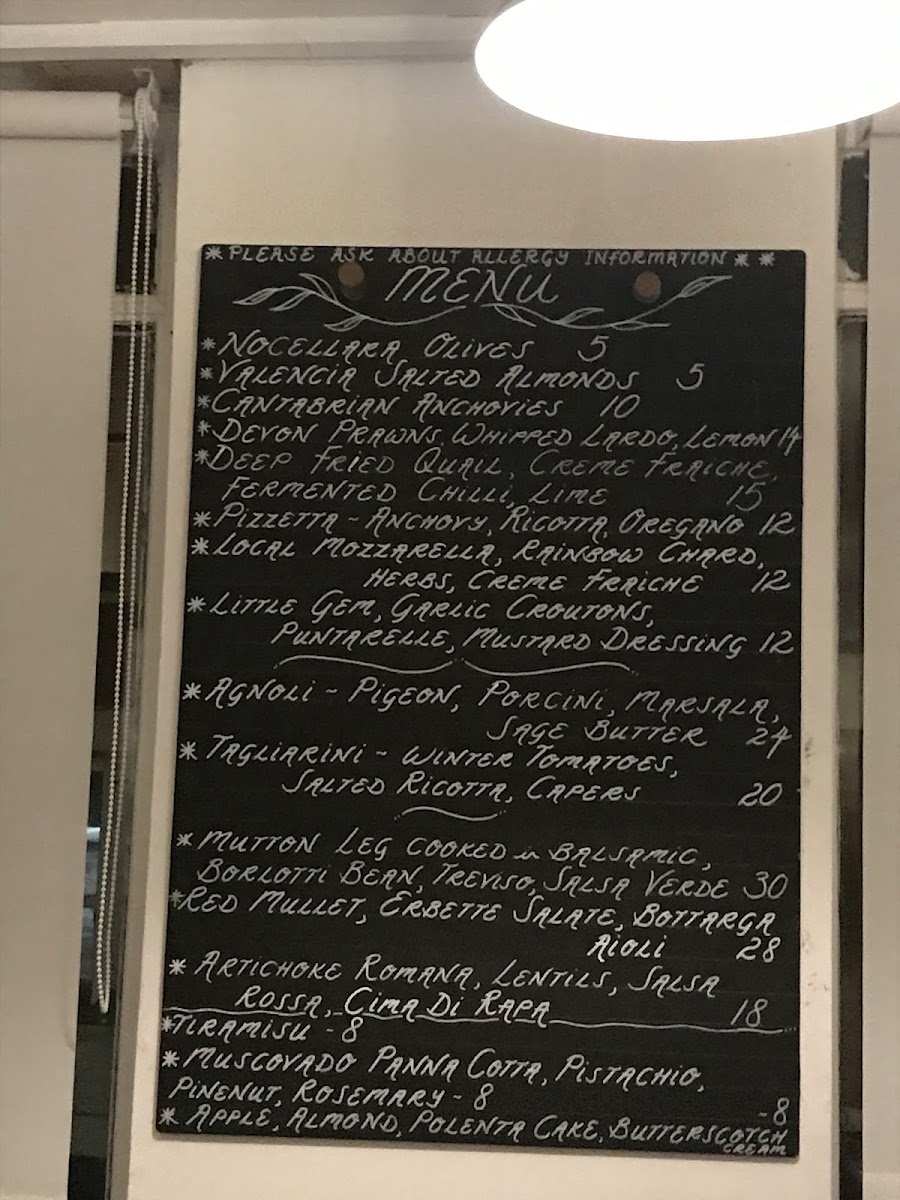 * PLEASE ASK ABOUT ALLERGY INFORMATION * *
MENU
* NOCELLARA OLIVES 5
* VALENCIA SALTED ALMONDS 5
* CANTABRIAN ANCHOVIES 10
* DEVON PRAWNS, WHIPPED LARDO, LEMON 14
* DEEP FRIED QUAIL, CREME FRAICHE,
FERMENTED CHILLI, LIME 15
* PIZZETTA - ANCHOVY, RICOTTA, OREGANO 12
* LOCAL MOZZARELLA, RAINBOW CHARD,
HERBS, CREME FRAICHE 12
* LITTLE GEM, GARLIC CROUTONS,
PUNTARELLE, MUSTARD DRESSING 12
* AGNOLI - PIGEON, PORCINI, MARSALA,
SAGE BUTTER 24
* TAGLIARINI - WINTER TOMATOES,
SALTED RICOTTA, CAPERS 20
* MUTTON LEG COOKED in BALSAMIC,
BORLOTTI BEAN, TREVISO, SALSA VERDE 30
* RED MULLET, ERBETTE SALATE, BOTTARGA
AIOLI 28
* ARTICHOKE ROMANA, LENTILS, SALSA
ROSSA, CIMA DI RAPA 18
* TIRAMISU - 8
* MUSCOVADO PANNA COTTA, PISTACHIO,
PINENUT, ROSEMARY - 8
- 8
* APPLE, ALMOND, POLENTA CAKE, BUTTERSCOTCH
CREAM